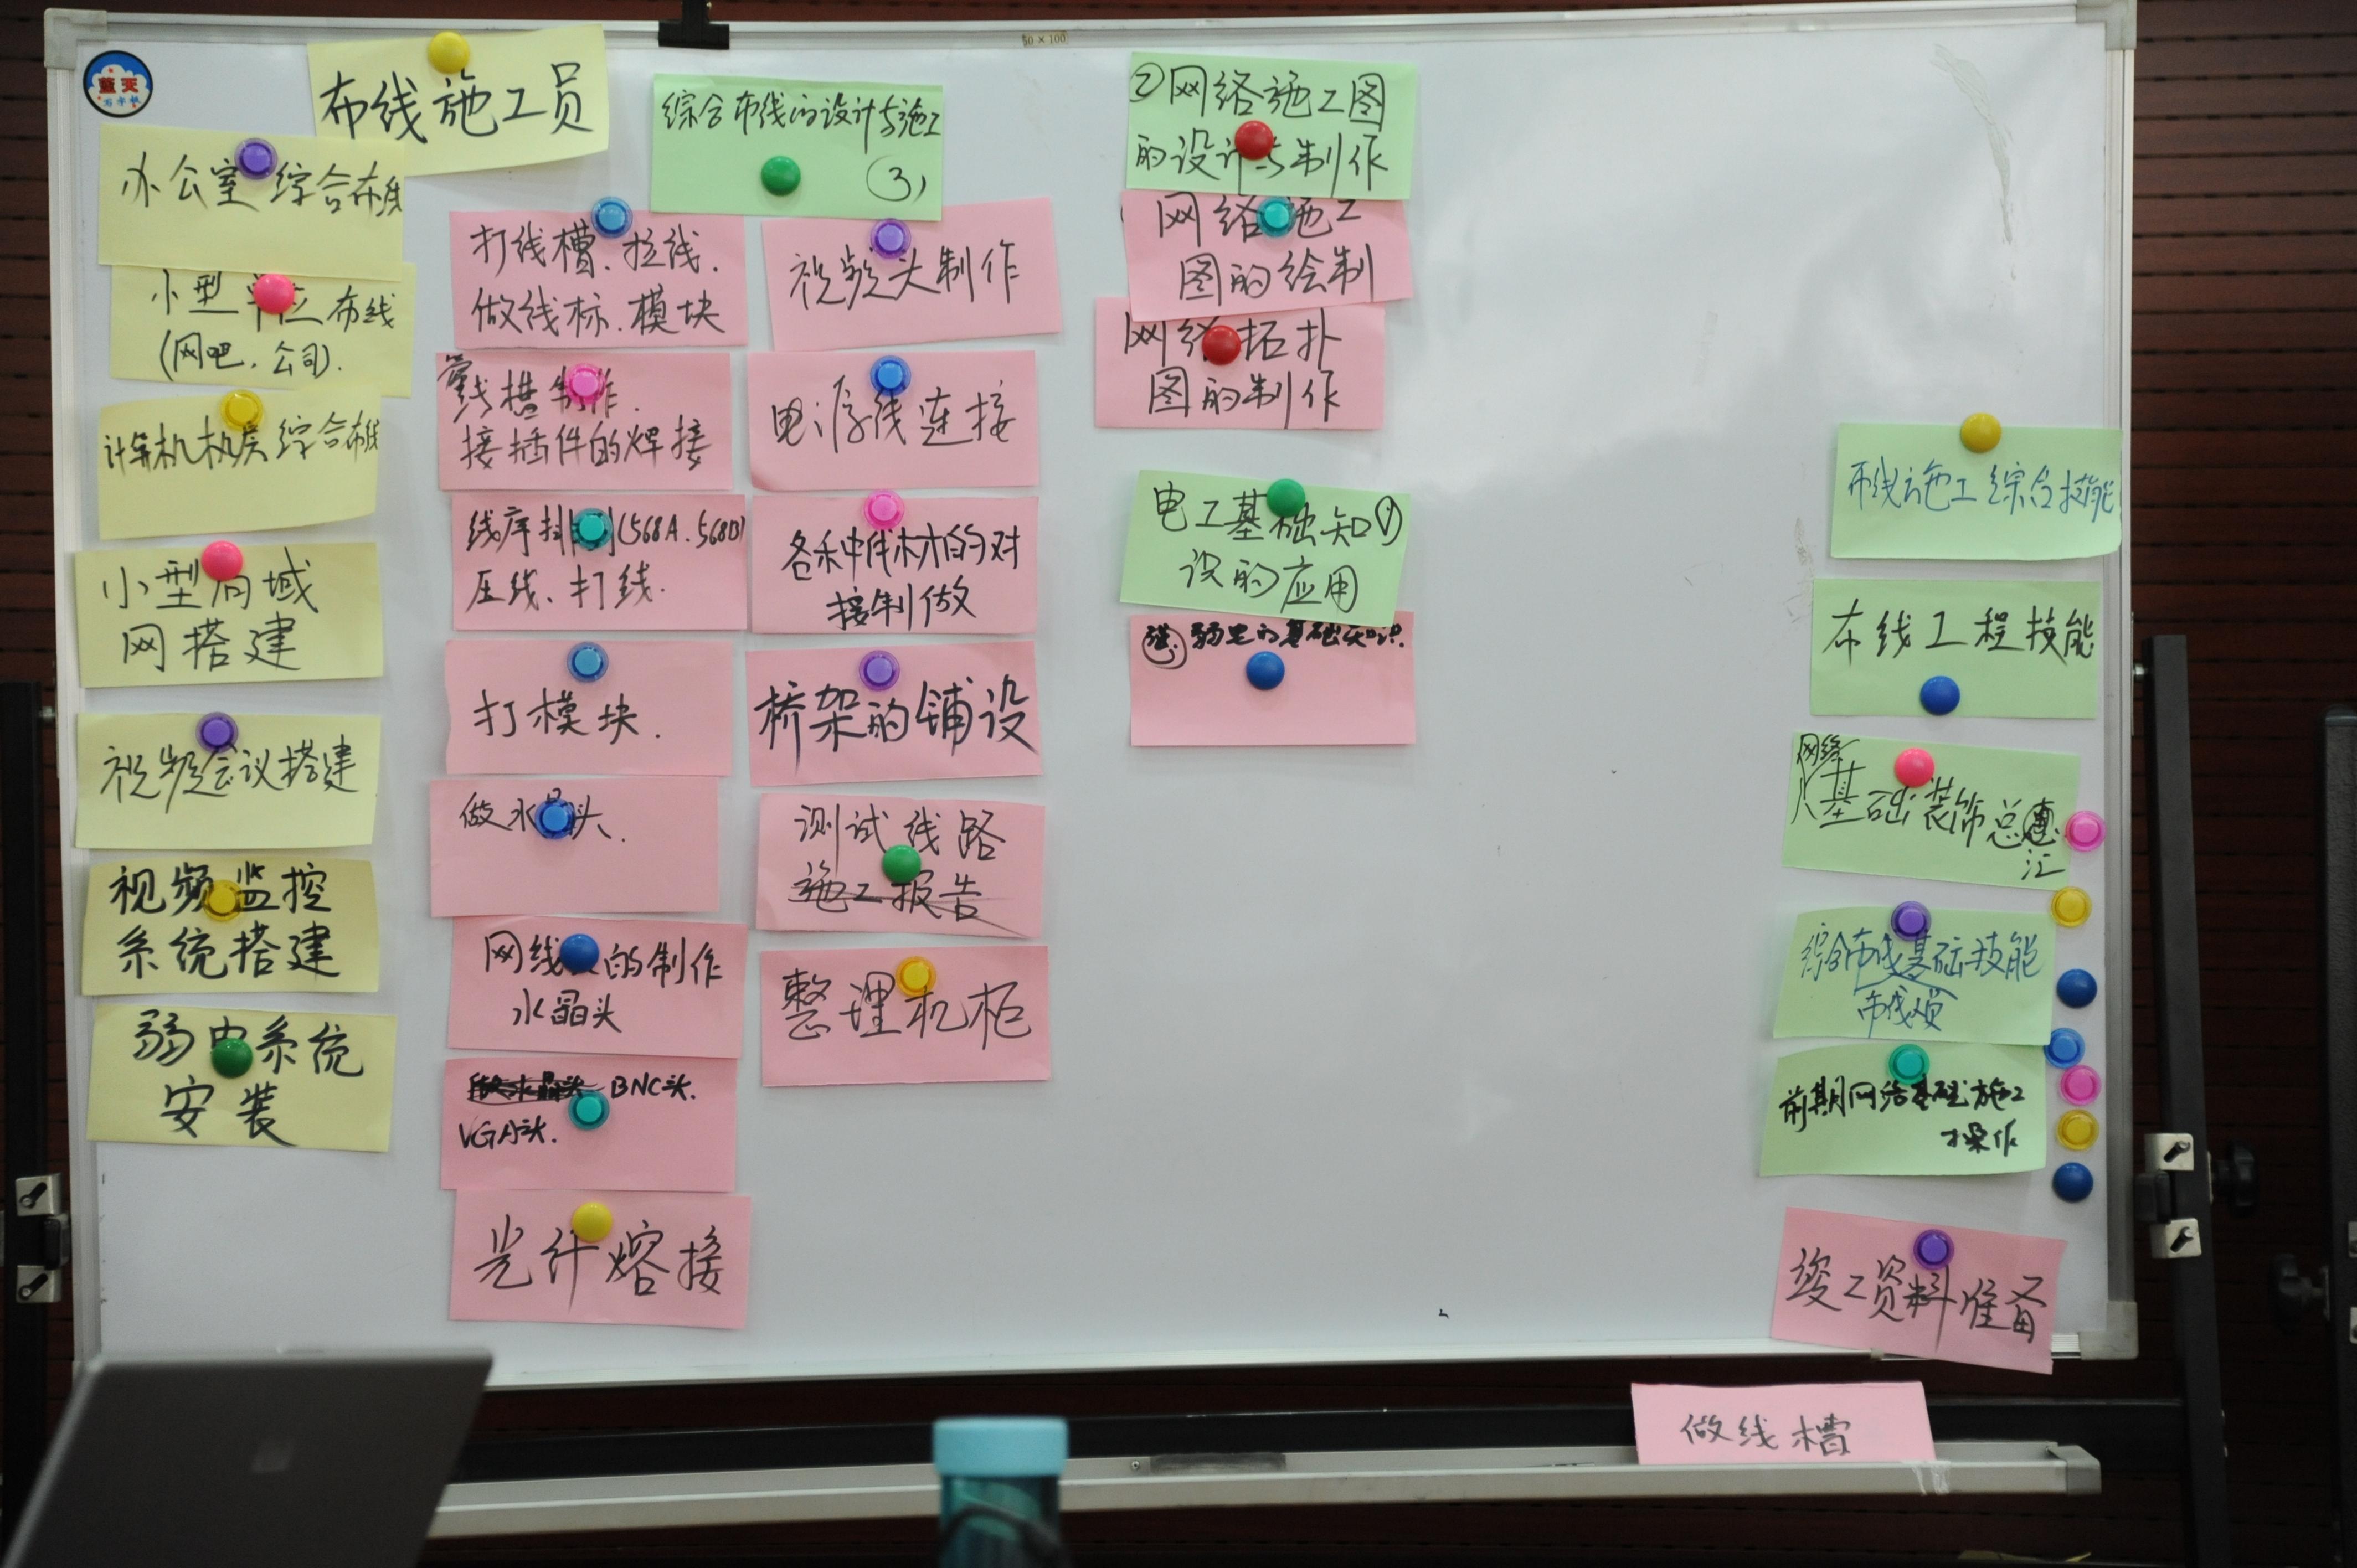 蓝天
写字板
50×100
布线施工员
办公室综合布线
小型单位布线
(网吧.公司).
计算机机房综合布线
小型局域
网搭建
视频会议搭建
视频监控
系统搭建
弱电系统
安装
综合布线的设计与施工
③
打线槽.拉线.
做线标.模块
线槽制作.
接插件的焊接
线序排列(568A.568B)
压线、打线.
打模块.
做水晶头.
网线的制作
水晶头
BNC头.
VGA头.
光纤熔接
视频头制作
电源线连接
各种线材的对
接制做
桥架的铺设
测试线路
施工报告
整理机柜
②网络施工图
的设计与制作
网络施工
图的绘制
网络拓扑
图的制作
电工基础知①
识的应用
弱电的基础知识.
布线施工综合技能
布线工程技能
网络
基础装饰总
汇
综合布线基础技能
布线员
前期网络基础施工
操作
竣工资料准备
做线槽